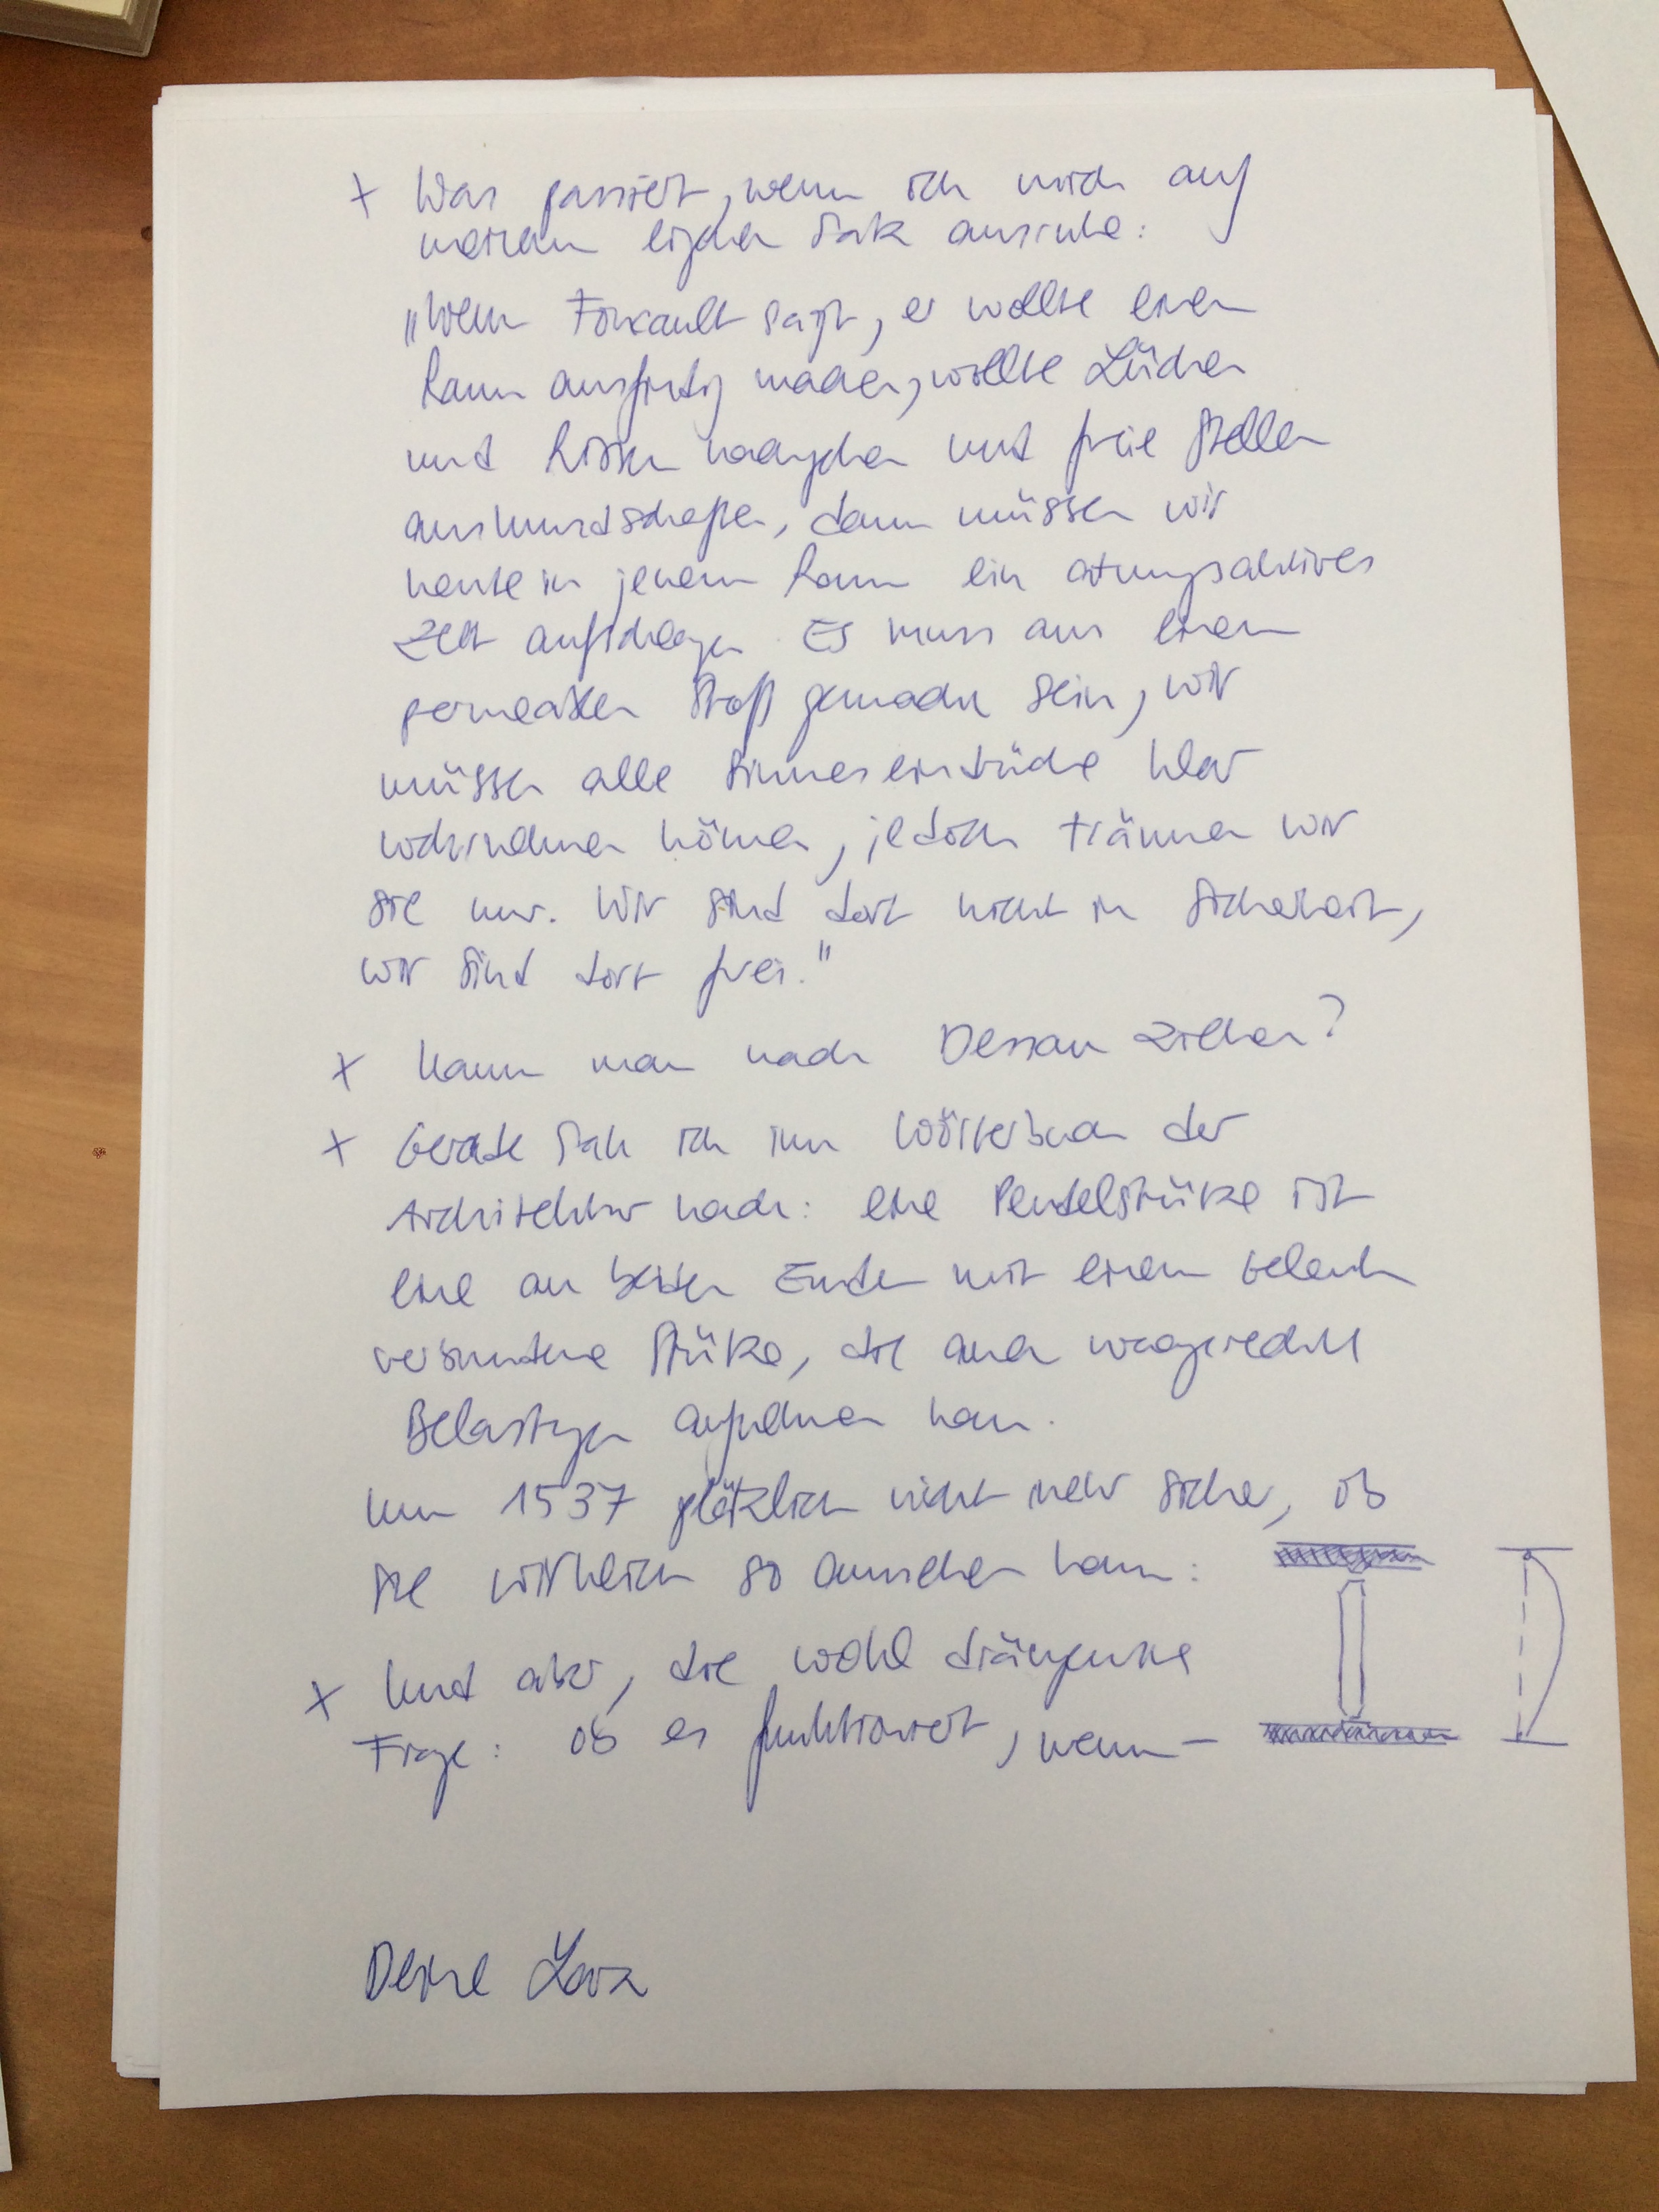 + Was passiert, wenn ich mich auf
meinem eigenen Satz ausruhe:
„Wenn Foucault sagt, er wollte einen
Raum ausfindig machen, wollte Löcher
und Risse nachgehen und freie Stellen
auskundschaften, dann müssen wir
heute in jenem Raum ein atmungsaktives
Zelt aufschlagen. Es muss aus einem
permeablen Stoff gemacht sein, wir
müssen alle Sinneseindrücke klar
wahrnehmen können, jedoch träumen wir
sie nur. Wir sind dort nicht in Sicherheit,
wir sind dort frei."
+ Kann man nach Dessau ziehen?
+ Gerade sah ich im Wörterbuch der
Architektur nach: eine Pendelstütze ist
eine an beiden Enden mit einem Gelenk
verbundene Stütze, die auch waagrechte
Belastungen aufnehmen kann.
Um 1537 plötzlich nicht mehr sicher, ob
sie wirklich so aussehen kann:
+ Und aber, die wohl drängenste
Frage: ob es funktioniert, wenn –
Deine Lara